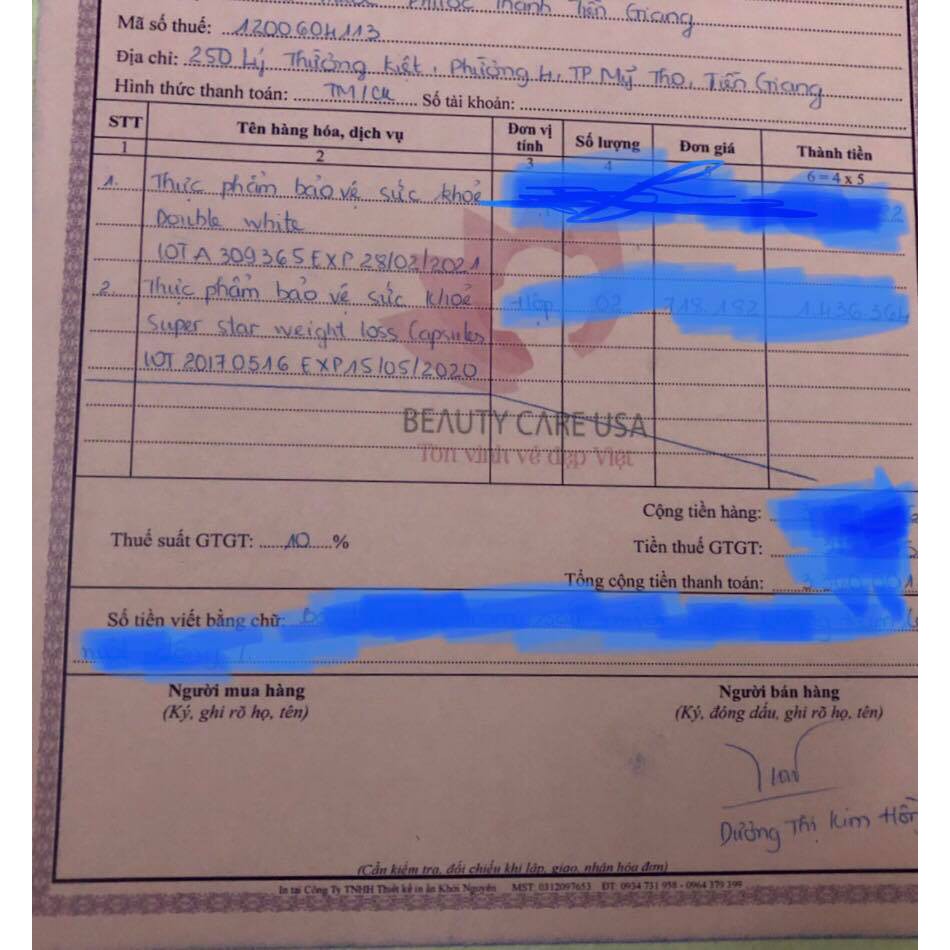 Phước Thạnh Tiền Giang
Mã số thuế: 1200604113
Địa chỉ: 250 Lý Thường Kiệt, Phường 4, TP Mỹ Tho, Tiền Giang
Hình thức thanh toán: TM/CK Số tài khoản:
STT Tên hàng hóa, dịch vụ Đơn vị tính Số lượng Đơn giá Thành tiền
1 2 3 4 6 = 4 x 5
1. Thực phẩm bảo vệ sức khoẻ
Double white
LOT A 309365 EXP 28/02/2021
2. Thực phẩm bảo vệ sức khoẻ Hộp 02 718.182 1.436.364
Super star weight loss Capsules
LOT 20170516 EXP 15/05/2020
BEAUTY CARE USA
Tôn vinh vẻ đẹp Việt
Cộng tiền hàng:
Thuế suất GTGT: 10 % Tiền thuế GTGT:
Tổng cộng tiền thanh toán:
Số tiền viết bằng chữ:
Người mua hàng Người bán hàng
(Ký, ghi rõ họ, tên) (Ký, đóng dấu, ghi rõ họ, tên)
Dương Thị Kim
(Cần kiểm tra, đối chiếu khi lập, giao, nhận hóa đơn)
In tại Công Ty TNHH Thiết kế in ấn Khôi Nguyên MST: 0312097653 ĐT: 0934 731 958 - 0964 379 399